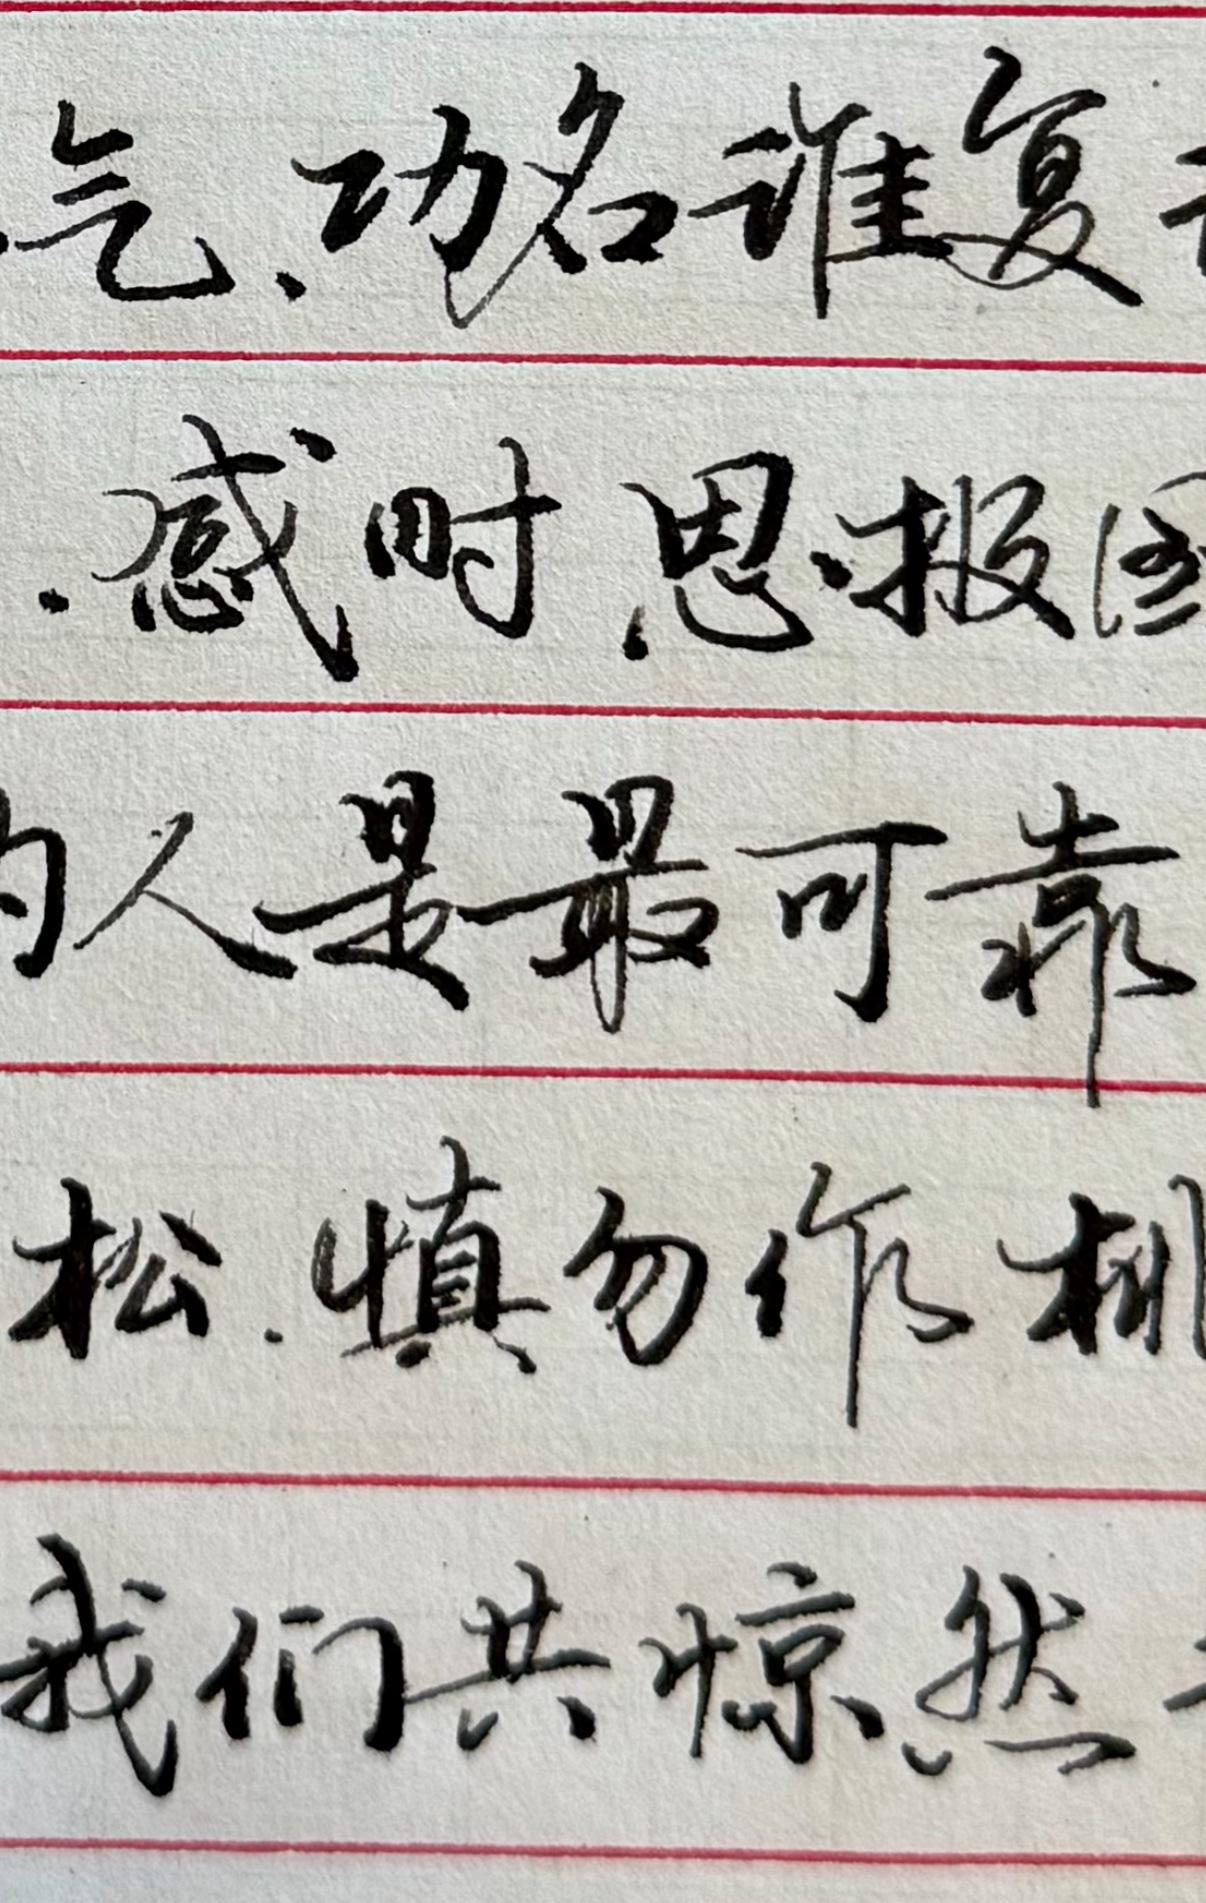 气、功名谁复
.感时思报国
的人是最可靠
松.慎勿作桃
我们共惊然